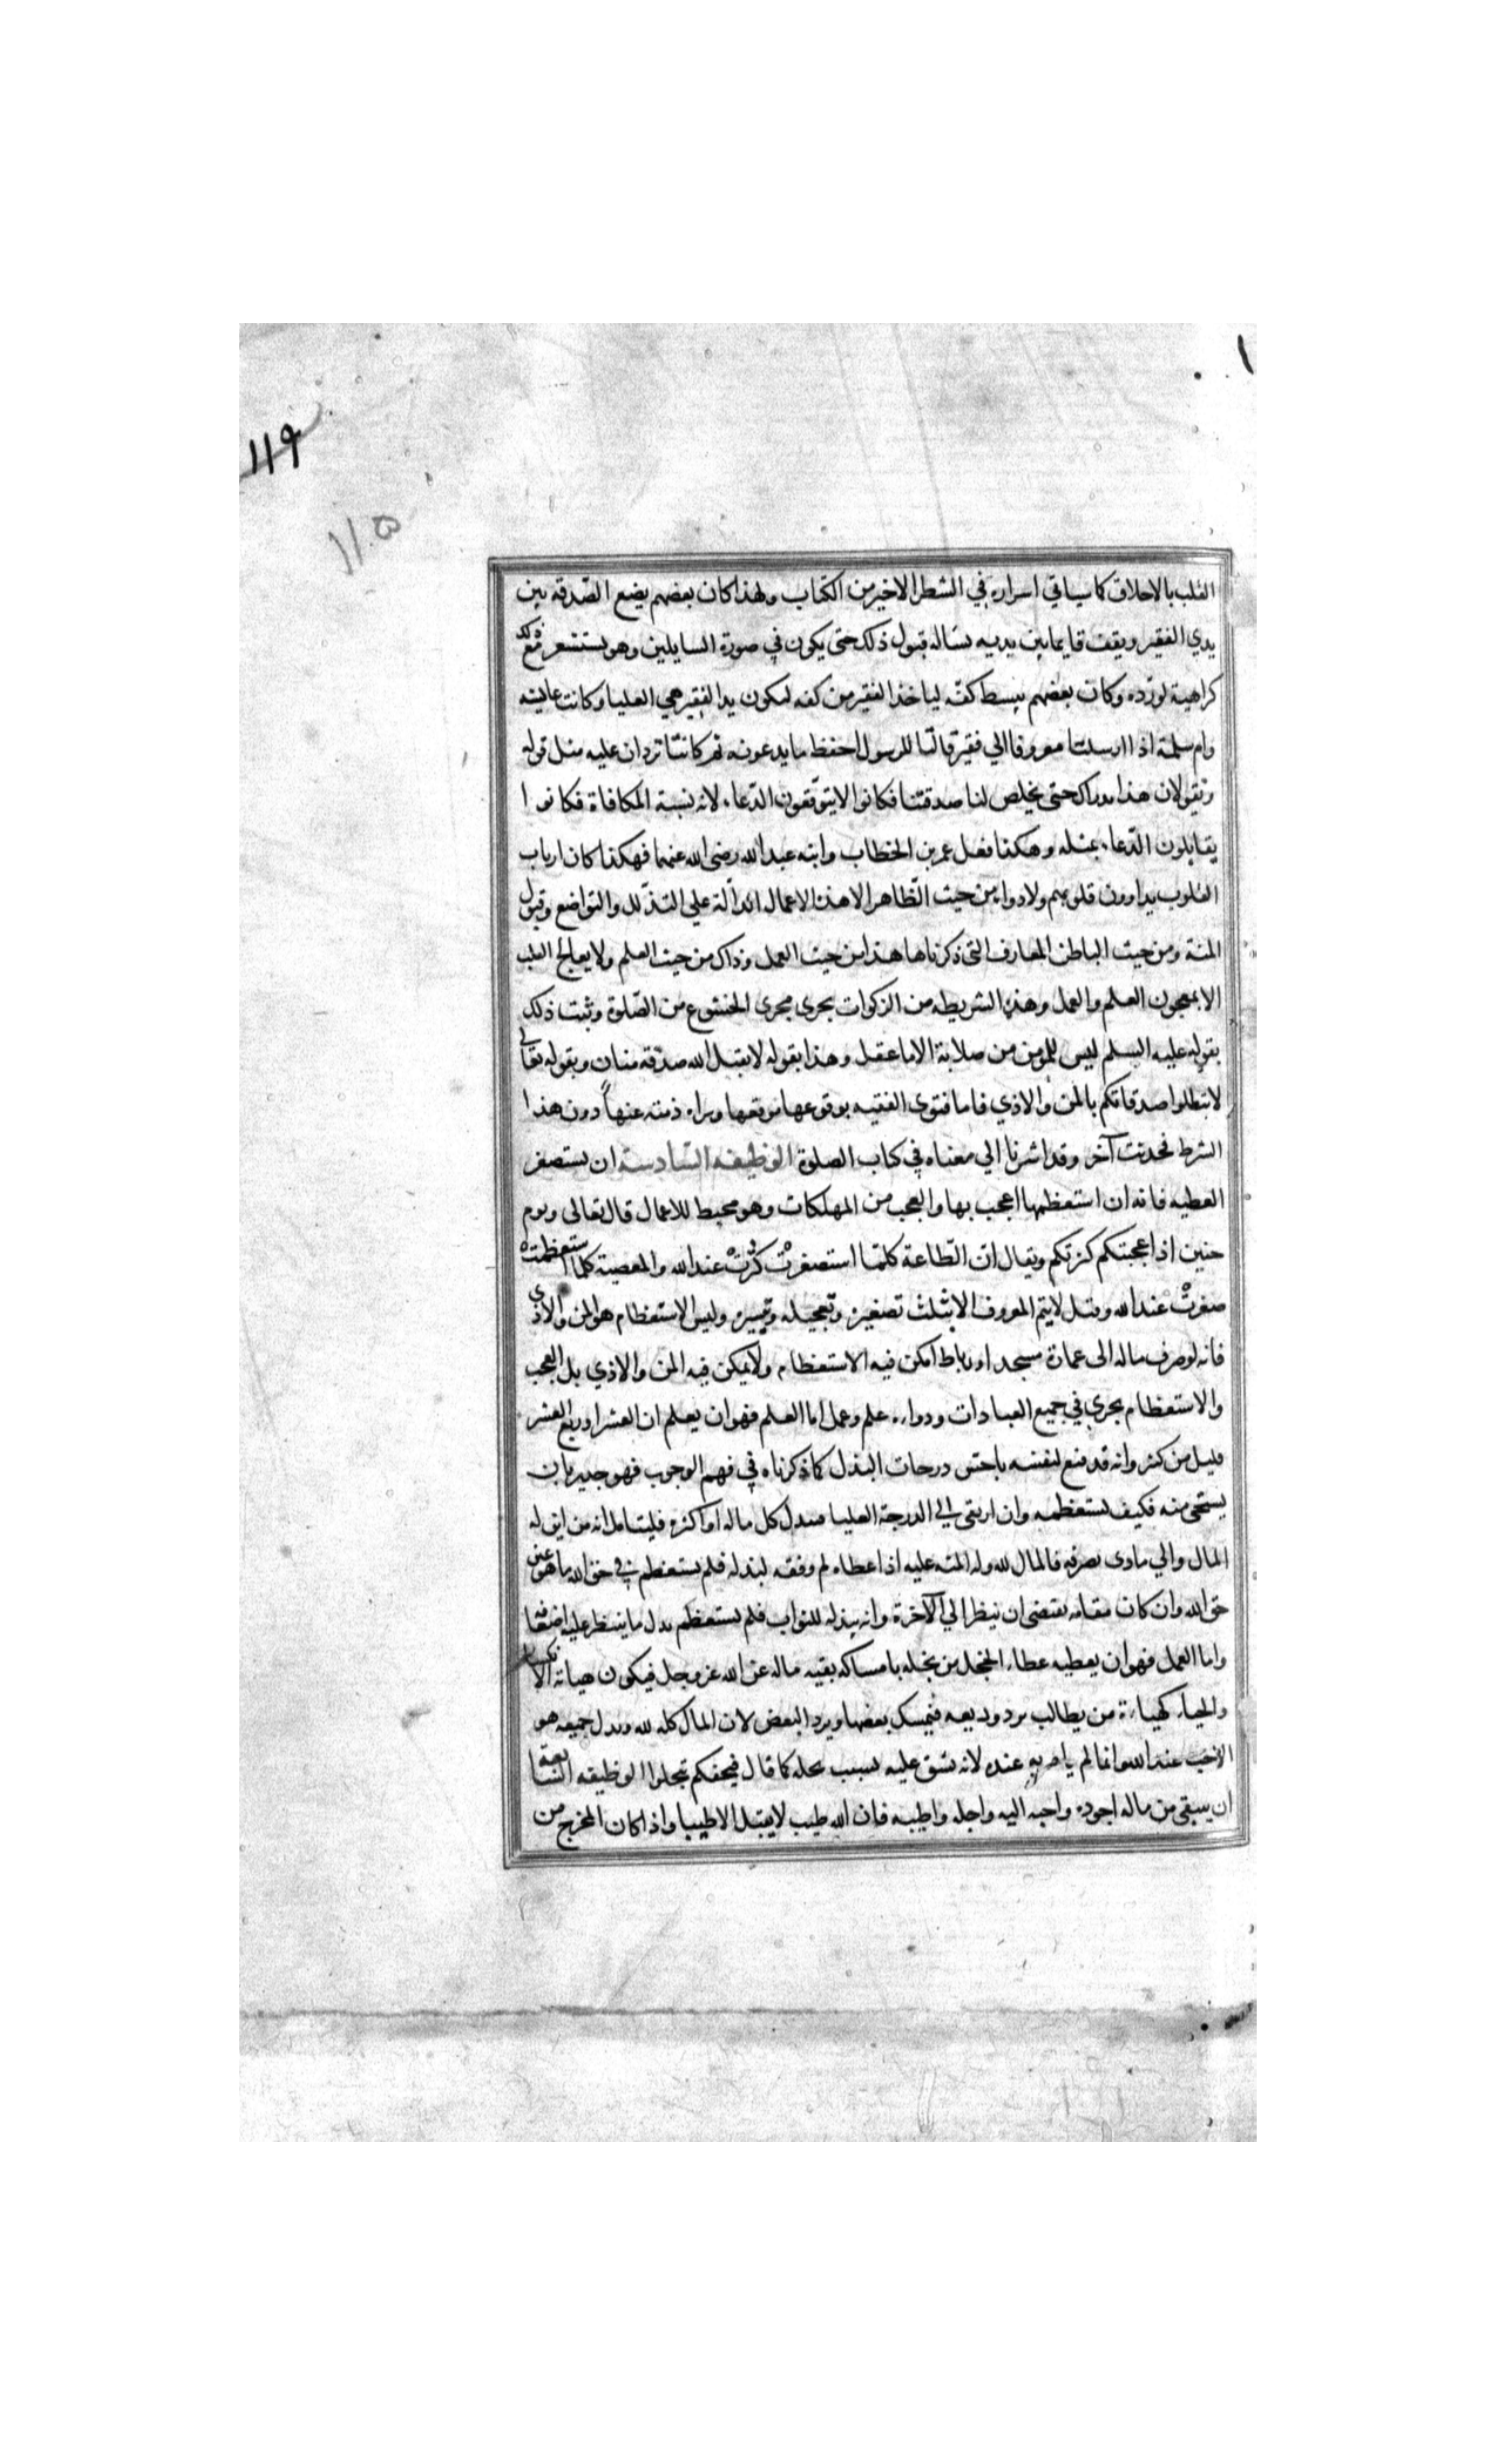 ١١٩
١١٥
القلب بالاخلاق كما سياتي اسراره في الشطر الاخير من الكتاب ولهذا كان بعضهم يضع الصّدقة بين
يدي الفقير ويقف قايما بين يديه يساله قبول ذلك حتى يكون في صورة السايلين وهو يستشعر مع ذلك
كراهية لو ردّه وكان بعضهم يبسط كفّه لياخذ الفقير من كفه ليكون يد الفقير هي العليا وكانت عايشه
وام سلمة اذا ارسلتا معروفا الي فقير قالتا للرسول احفظ ما يدعو به ثم كانتا تردان عليه مثل قوله
وتقولان هذا بذاك حتى يخلص لنا صدقتنا فكانوا لا يتوقعون الدّعاء لانه يشبه المكافاة فكانوا
يقابلون الدّعاء بمثله وهكذا فعل عمر بن الخطاب وابنه عبد الله رضى الله عنهما فهكذا كان ارباب
القلوب يداوون قلوبهم ولا دواء من حيث الظّاهر الا هذه الاعمال الدالّة علي التذلّل والتواضع وقبول
المنة ومن حيث الباطن المعارف التى ذكرناها هذا من حيث العمل وذاك من حيث العلم ولا يعالج القلب
الا بمعجون العلم والعمل وهذه الشريطه من الزكوات يجرى مجرى الخشوع من الصّلوة وثبت ذلك
بقوله عليه السلم ليس للمؤمن من صلابة الا ما عقل وهذا بقوله لا يقبل الله صدقة منان وبقوله تعالى
لا تبطلوا صدقاتكم بالمن والاذي فاما فتوى الفقيه بوقوعها موقعها وبراه ذمته عنها دون هذا
الشرط فحديث آخر وقد اشرنا الي معناه في كتاب الصلوة الوظيفه السّادسة ان يستصغر
العطيه فانه ان استعظمها اعجب بها والعجب من المهلكات وهو محبط للاعمال قال تعالى ويوم
حنين اذ اعجبتكم كثرتكم ويقال انّ الطّاعة كلمّا استصغرتْ كبُرتْ عند الله والمعصية كلما استعظمتْ
صغرتْ عند الله وقيل لا يتم المعروف الا بثلث تصغيره وتعجيله وتيسيره وليس الاستعظام هو المن والاذي
فانه لو صرف ماله الى عمارة مسجد او رباط امكن فيه الاستعظام ولا يمكن فيه المن والاذي بل العجب
والاستعظام يجري في جميع العبادات ودواءه علم وعمل اما العلم فهو ان يعلم ان العشر او ربع العشر
قليل من كثير وانه قد قنع لنفسه باخسّ درجات البذل كما ذكرناه في فهم الوجوب فهو جدير بان
يستحي منه فكيف يستعظمه وان ارتقى الى الدرجة العليا فبذل كل ماله او اكثره فليتامل انه من اين له
المال والي ماذى يصرفه فالمال لله وله المنه عليه اذ اعطاه ثم وفقه لبذله فلم يستعظم في حق الله ما هو عين
حق الله وان كان مقامه يقتضى ان ينظر الي الآخرة وانه يبذله للثواب فلم يستعظم بذل ما ينتظر عليه اضعافه
واما العمل فهو ان يعطيه عطاء الخجل من بخله بامساكه بقيه ماله عن الله عز وجل فيكون هياته الانكسار
والحياء كهياءة من يطالب برد وديعه فيمسك بعضها ويرد البعض لان المال كله لله وبذل جميعه هو
الاحب عند الله وانما لم يامر به عنده لانه يشق عليه بسبب بخله كما قال فيحفكم تبخلوا الوظيفه السّابعة
ان ينتقى من ماله اجوده واحبه اليه واجله واطيبه فان الله طيب لا يقبل الا طيبا واذا كان المخرج من